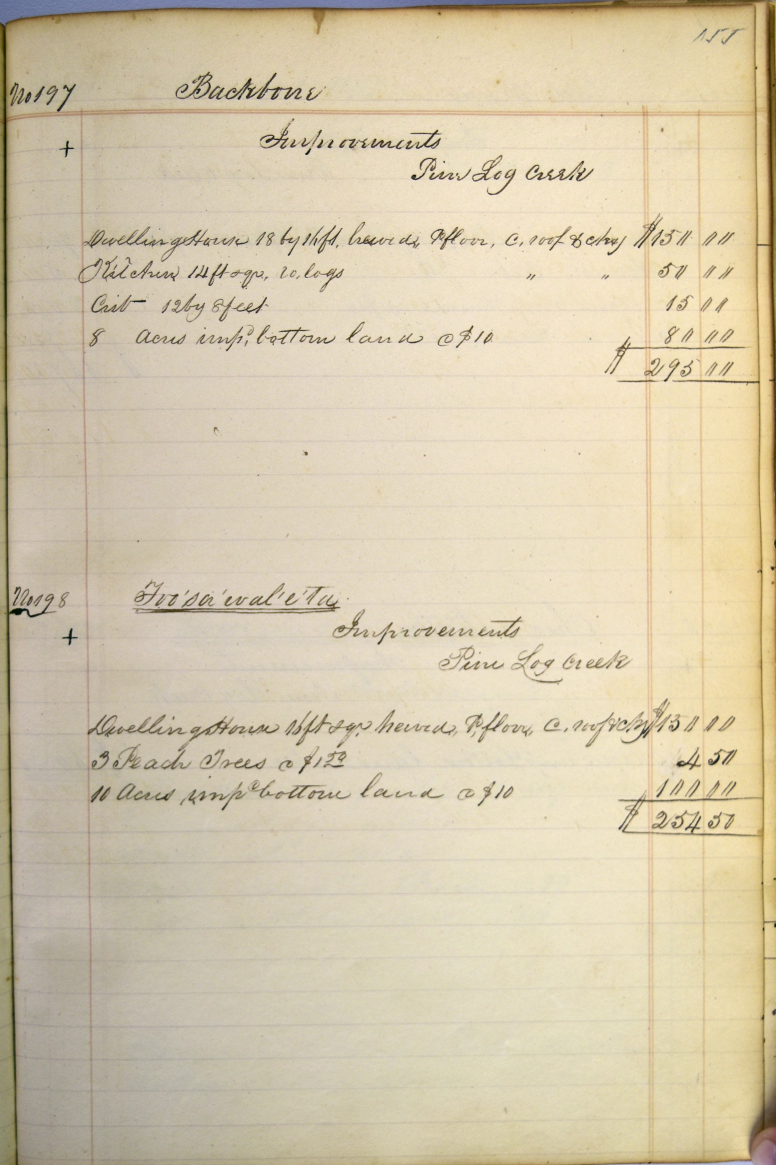 155
No 197 Backbone
+ Improvements
Pine Log Creek
Dwelling House 18 by 16 ft, hewed, P. floor, C. roof & chy $ 150 00
Kitchen 14 ft sqr, ro. logs " " 50 00
Crib 12 by 8 feet 15 00
8 Acres impd. bottom land @ $10 80 00
$ 295 00
No 198
+ Improvements
Pine Log Creek
Dwelling House 16 ft sqr. hewed, P. floor, C. roof & chy $ 150 00
3 Peach Trees @ $1 50 4 50
10 Acres impd bottom land @ $10 100 00
$ 254 50